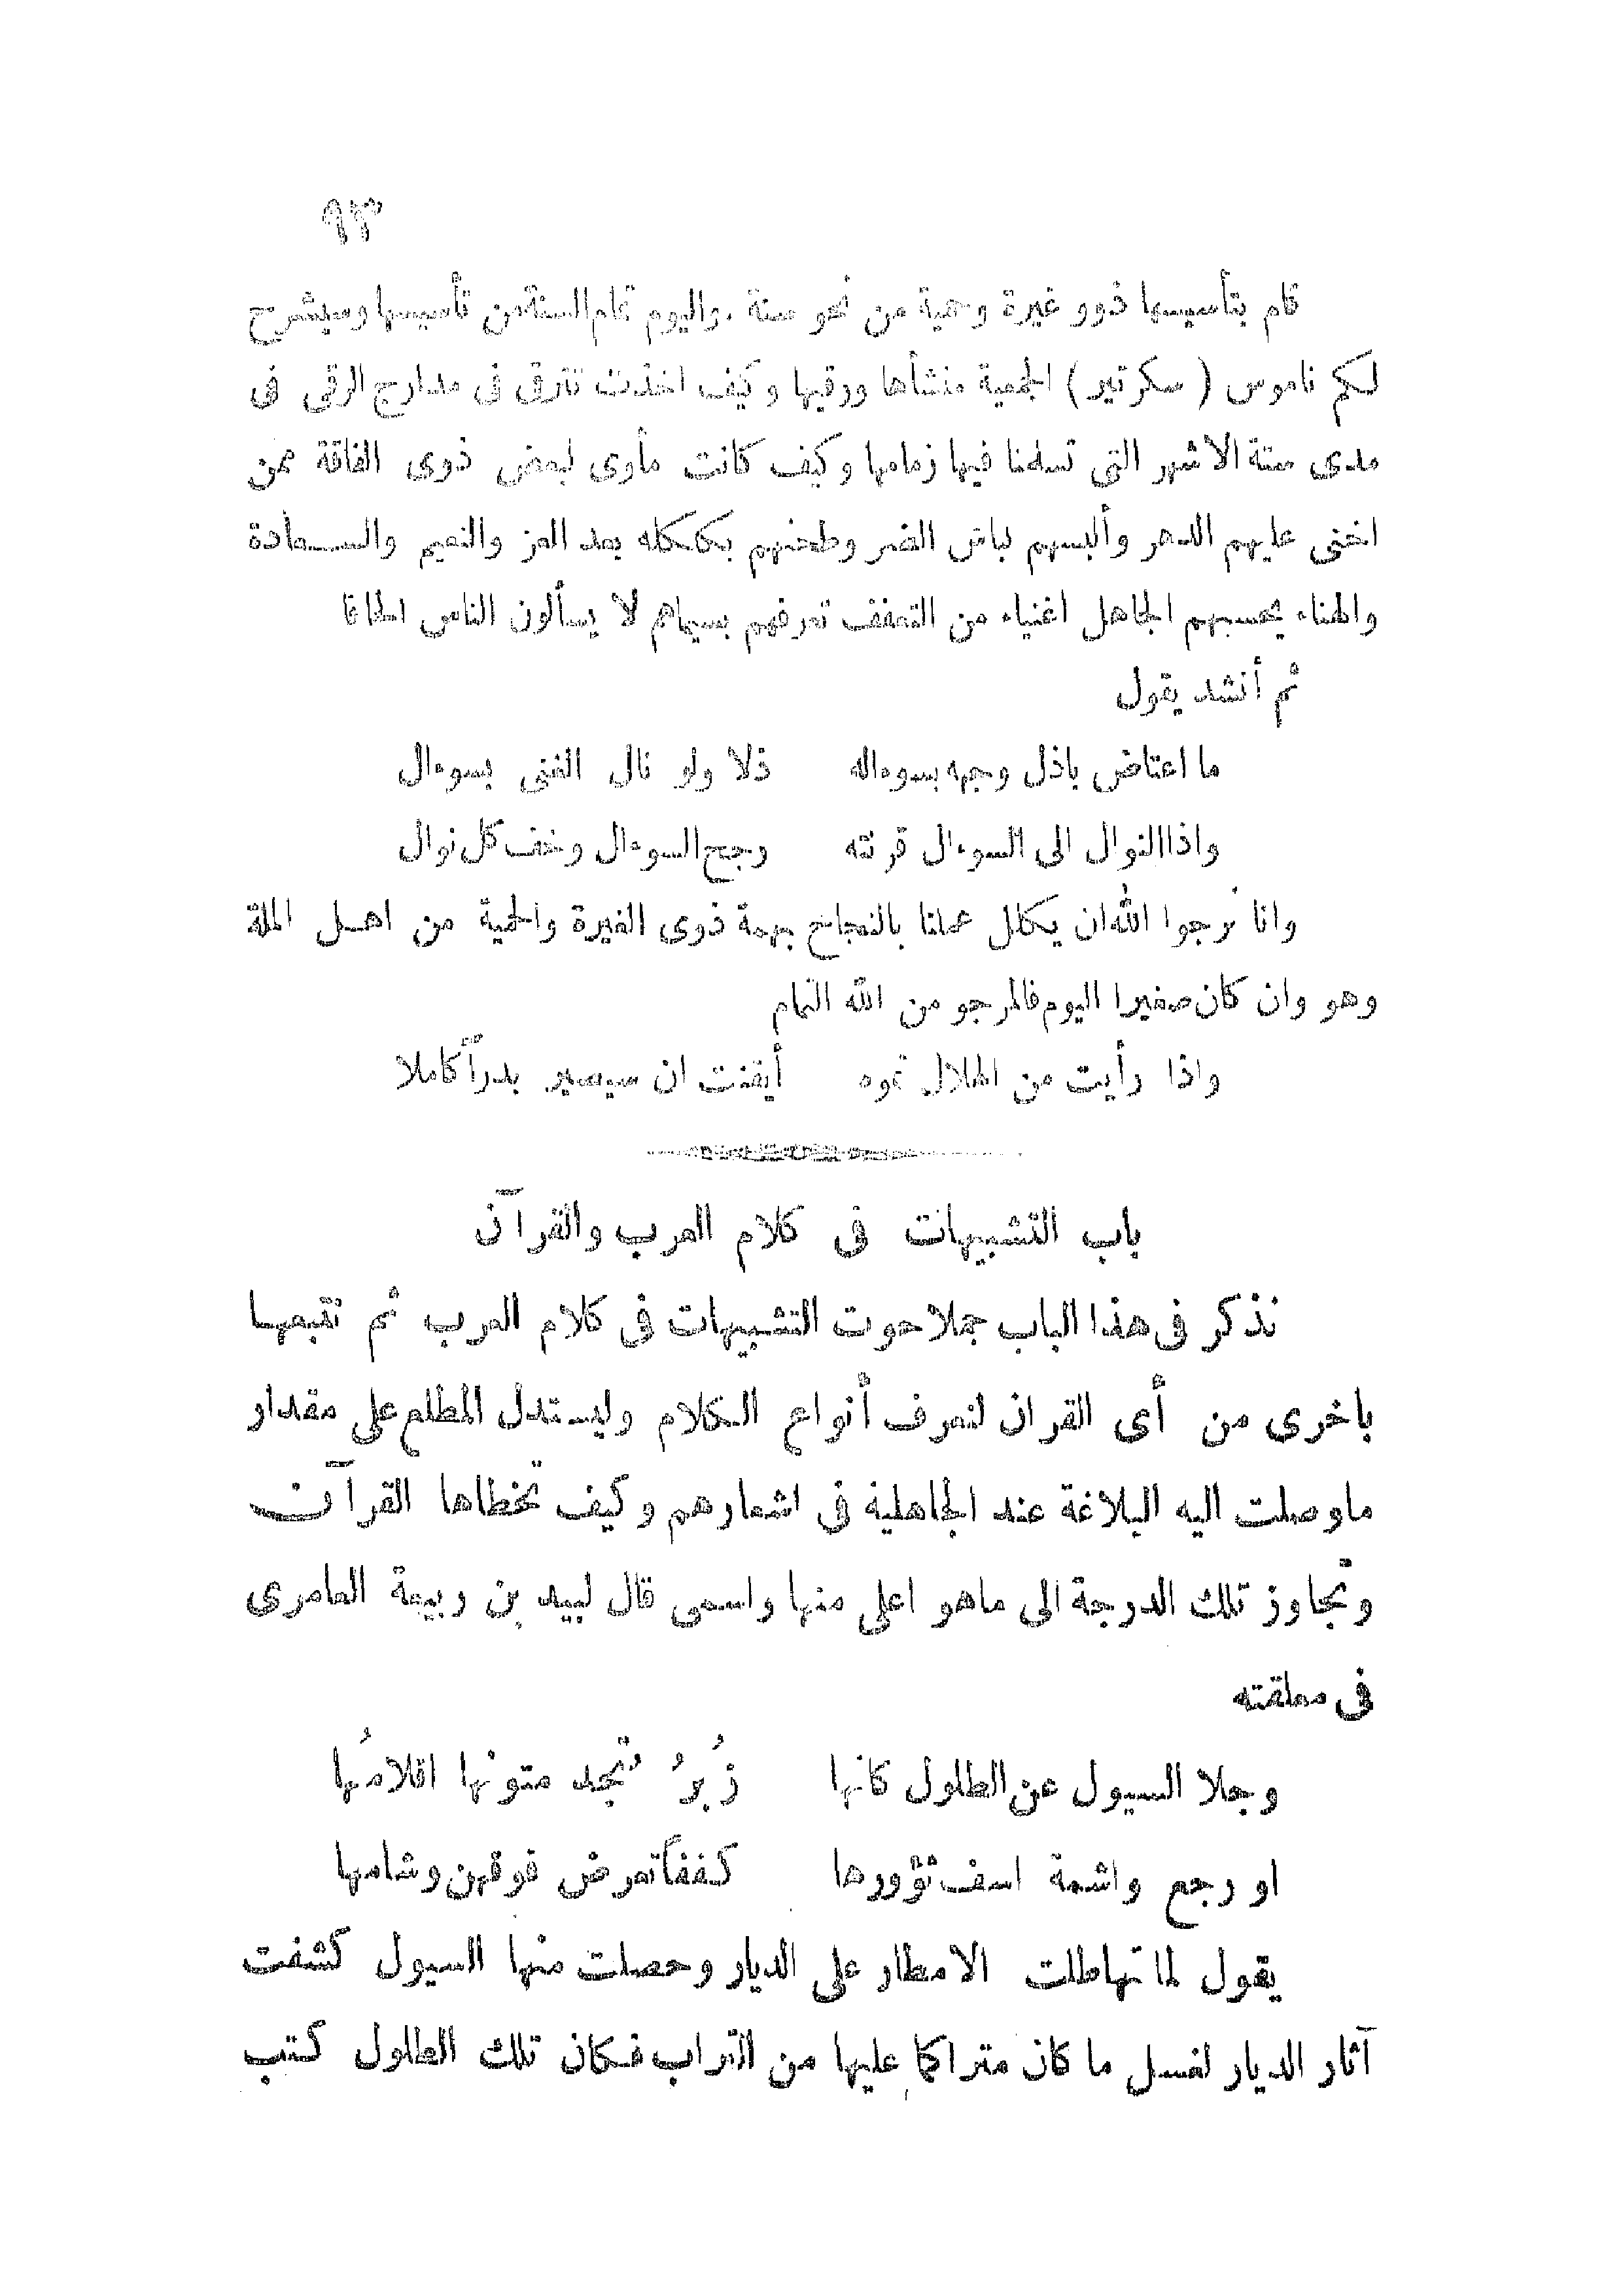 ٩٣
قام بتأسيسها ذوو غيرة وحمية من نحو سنة . واليوم تمام السنة من تأسيسها وسيشرح
لكم ناموس ( سكرتير ) الجمعية منشأها ورقيها وكيف اخذت تترقى فى مدارج الرقي فى
مدى ستة الاشهر التى تسلمنا فيها زمامها وكيف كانت مأوى لبعض ذوى الفاقة ممن
اخنى عليهم الدهر وألبسهم لباس الضر وطحنهم بكلكله بعد العز والنعيم والسعادة
والهناء يحسبهم الجاهل اغنياء من التعفف تعرفهم بسيماهم لا يسألون الناس الحافا
ثم أنشد يقول
ما اعتاض باذل وجهه بسوءاله ذلا ولو نال الغنى بسوءال
واذا النوال الى السوءال قرنته رجح السوءال وخف كل نوال
وانا نرجوا الله ان يكلل عملنا بالنجاح بهمة ذوى الغيرة والحمية من اهل الملة
وهو وان كان صغيرا اليوم فالمرجو من الله التمام
واذا رأيت من الهلال نموه أيقنت ان سيصير بدرأ كاملا
باب التشبيهات فى كلام العرب والقرآن
نذكر فى هذا الباب جملا حوت التشبيهات فى كلام العرب ثم نتبعها
باخرى من أى القران لنعرف أنواع الكلام وليستدل المطلع على مقدار
ماوصلت اليه البلاغة عند الجاهلية فى اشعارهم وكيف تخطاها القرآن
وتجاوز تلك الدرجة الى ماهو اعلى منها واسمى قال لبيد بن ربيعة العامرى
فى معلقته
وجلا السيول عن الطلول كانها زُبرُ تُجد متونها اقلامُها
او رجع واشمة اسف نؤورها كففاً تعرض فوقهن وشامها
يقول لما تهاطلت الامطار على الديار وحصلت منها السيول كشفت
آثار الديار لغسل ما كان متراكما عليها من التراب فكان تلك الطلول كتب